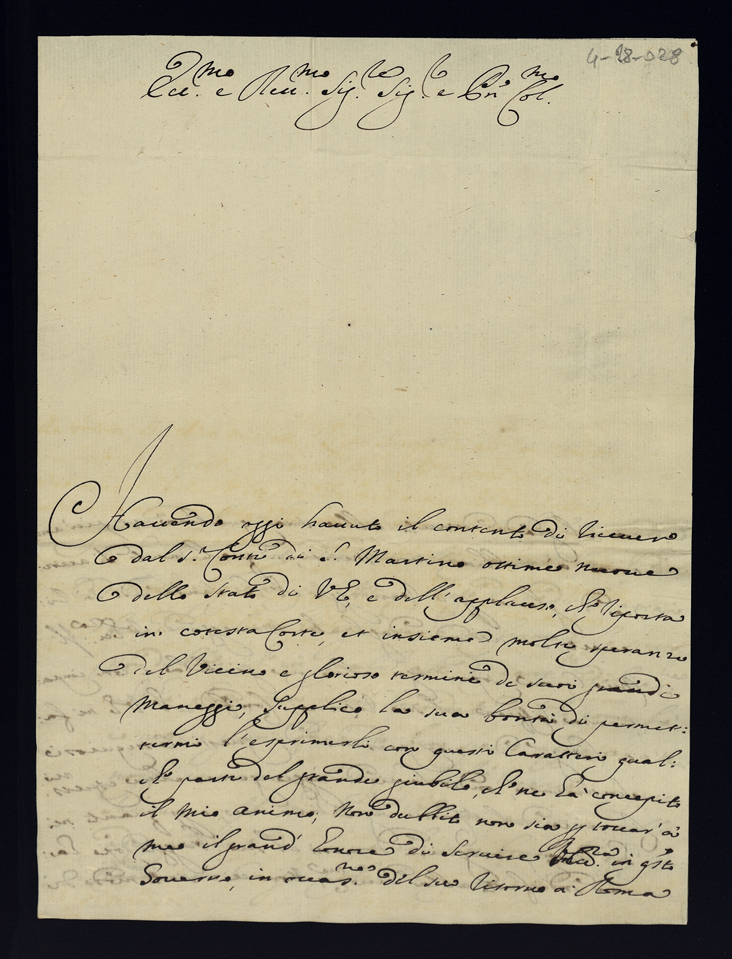 4-28-028
Ecc.mo e Reu.mo Sig.re Sig.r e Pn.e Col.mo
Hauendo oggi hauuto il contento di riceuere
dal S.r Conte di S. Martino ottime nuoue
dello stato di VE, e dell'applauso, che riporta
in cotesta Corte, et insieme molte speranze
del vicino e glorioso termine de suoi grandi
Maneggi, supplico la sua bontà di permet:
termi l'esprimerli con questi Caratteri qual:
che parte del grande giubilo, che ne hà concepito
il mio animo, Non dubito non sia p toccar' à
me il grand' honore di seruire in q.sto
Gouerno, in occas.ne del suo ritorno à Roma